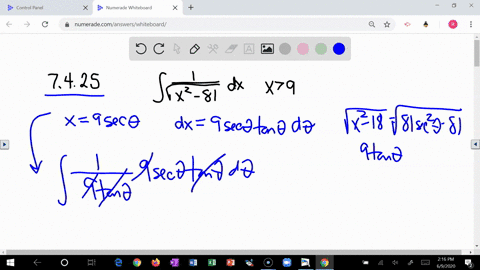 Control Panel
Numerade Whiteboard
numerade.com/answers/whiteboard/
7.4.25 ∫ 1/√(x²-81) dx x>9
x = 9secθ dx = 9secθtanθ dθ √(x²-18) = √(81sec²θ-81)
9tanθ
∫ 1/(9tanθ) 9secθtanθ dθ
2:16 PM
6/9/2020